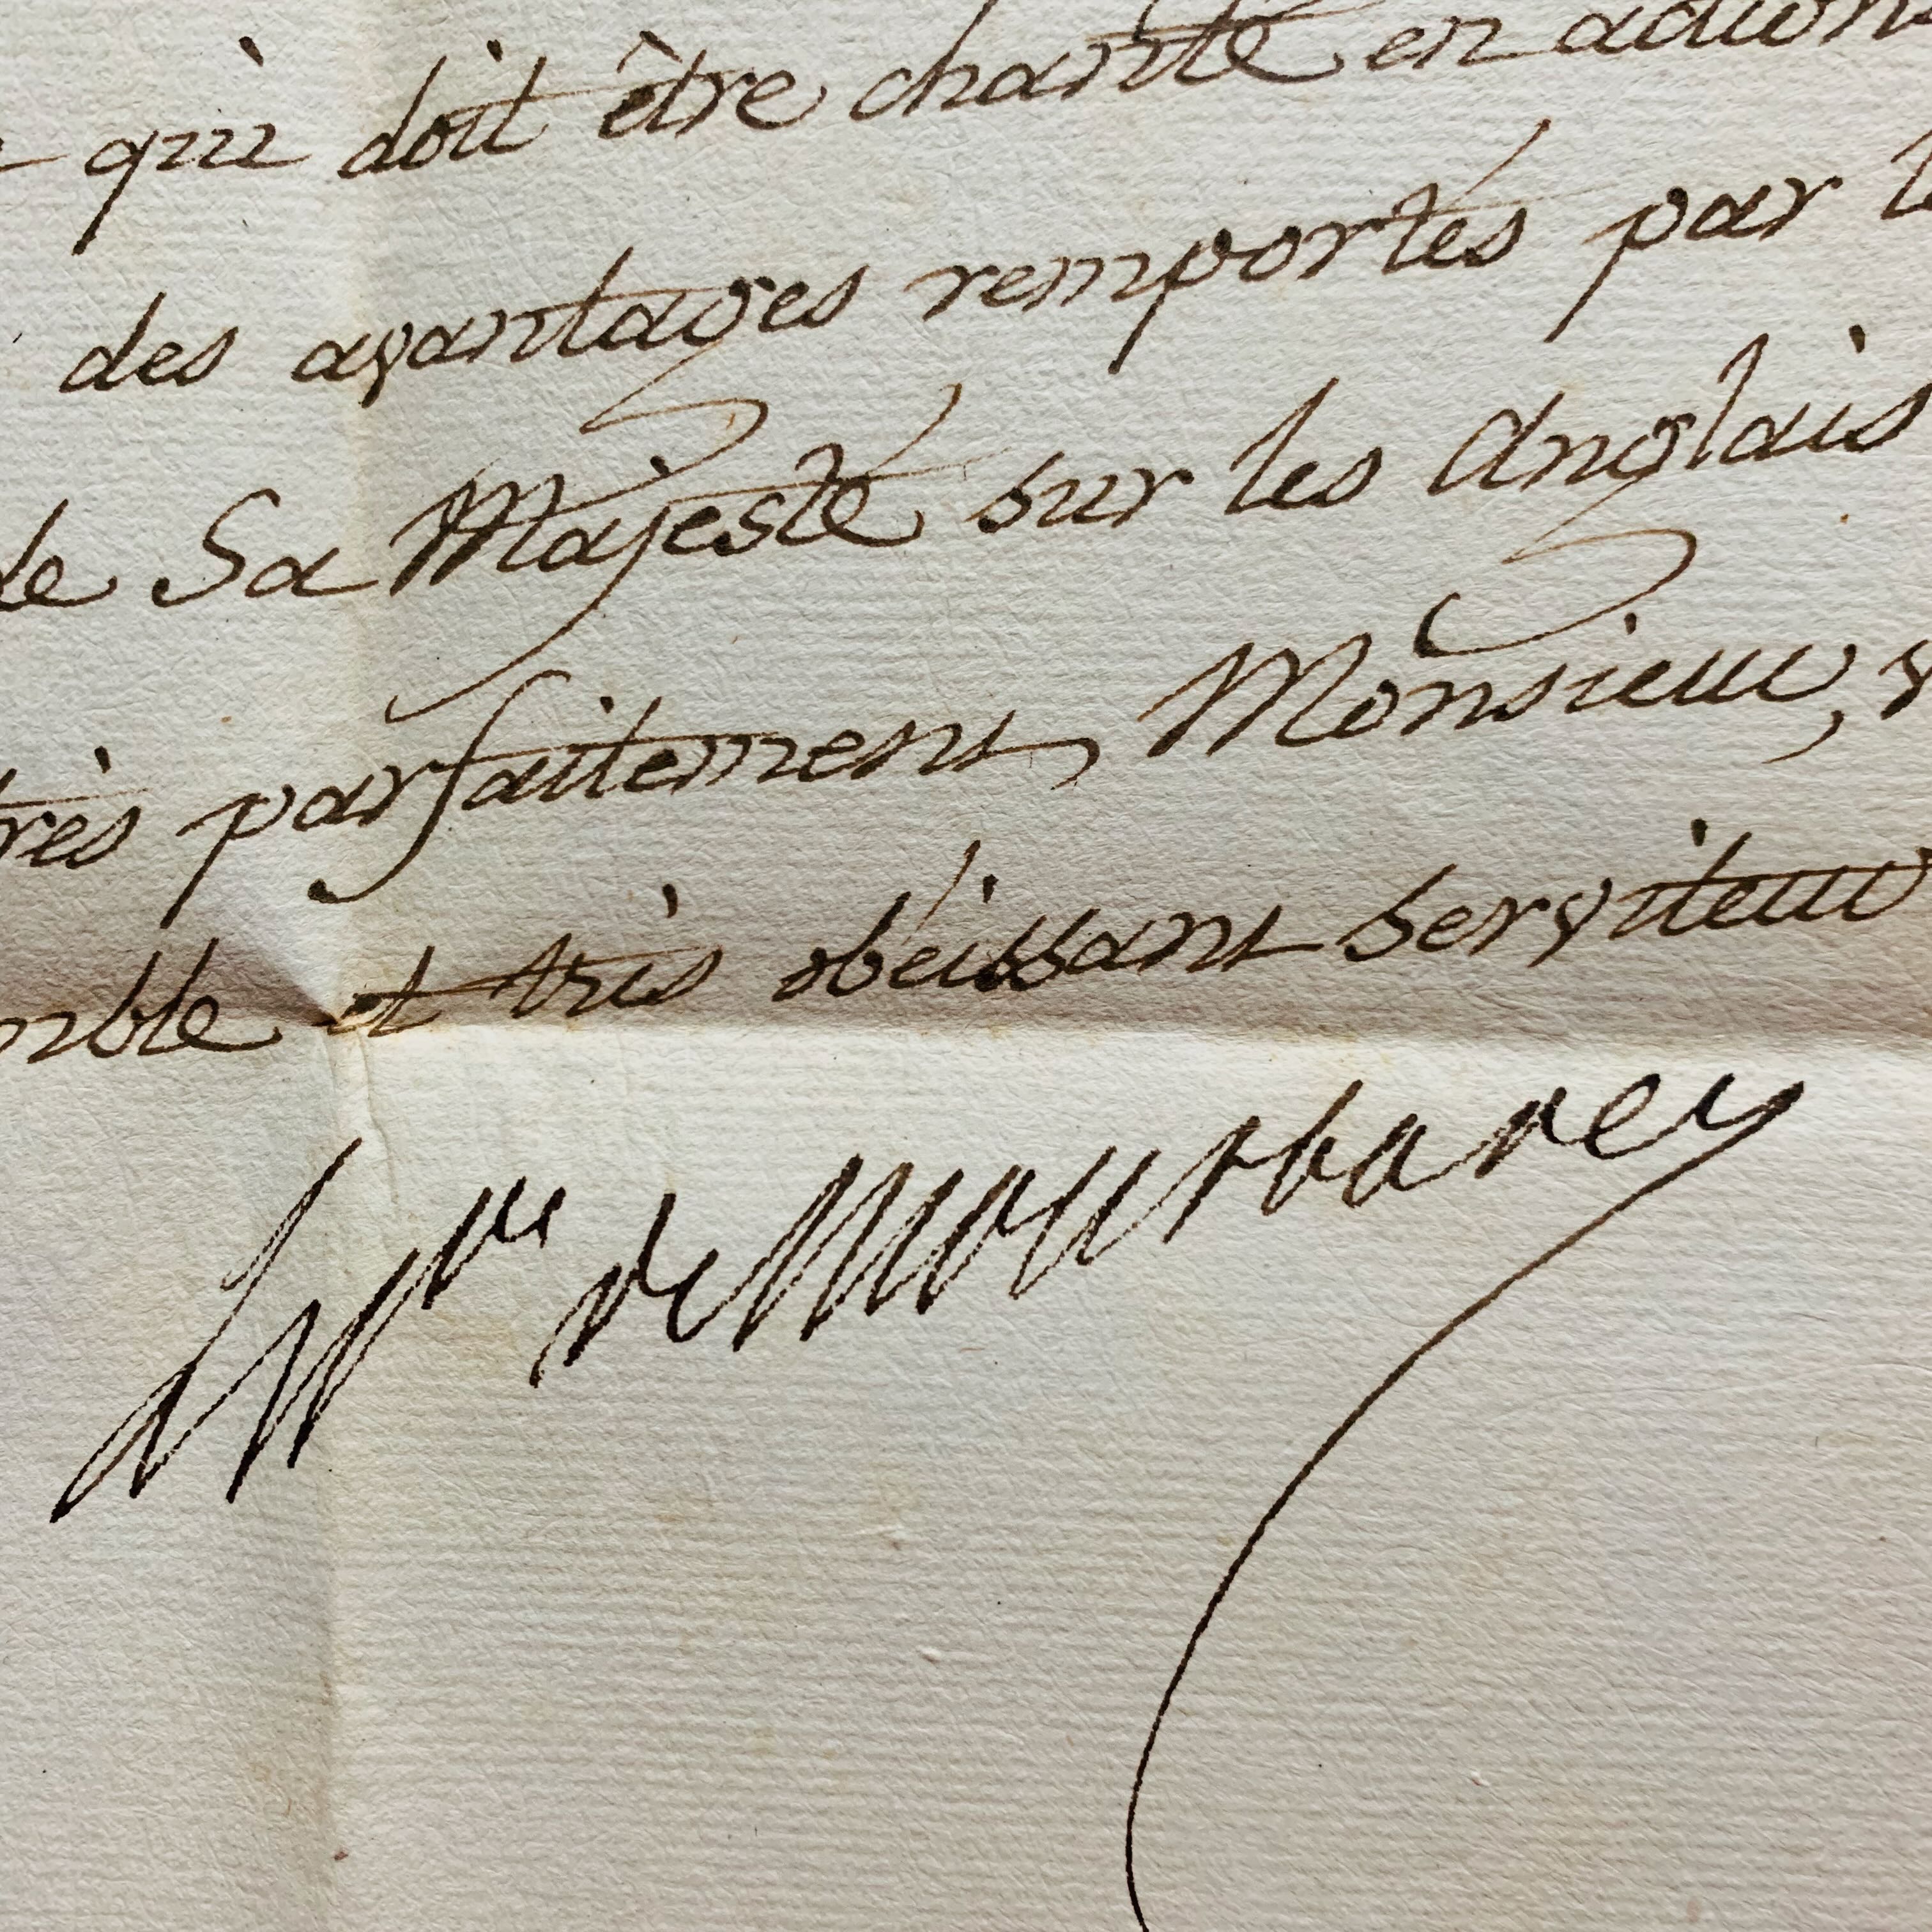 qui doit être chanté en actions
des avantages remportés par le
de Sa Majesté sur les Anglais
très parfaitement, Monsieur, v
mble et très obéissant serviteur
de Montbarey